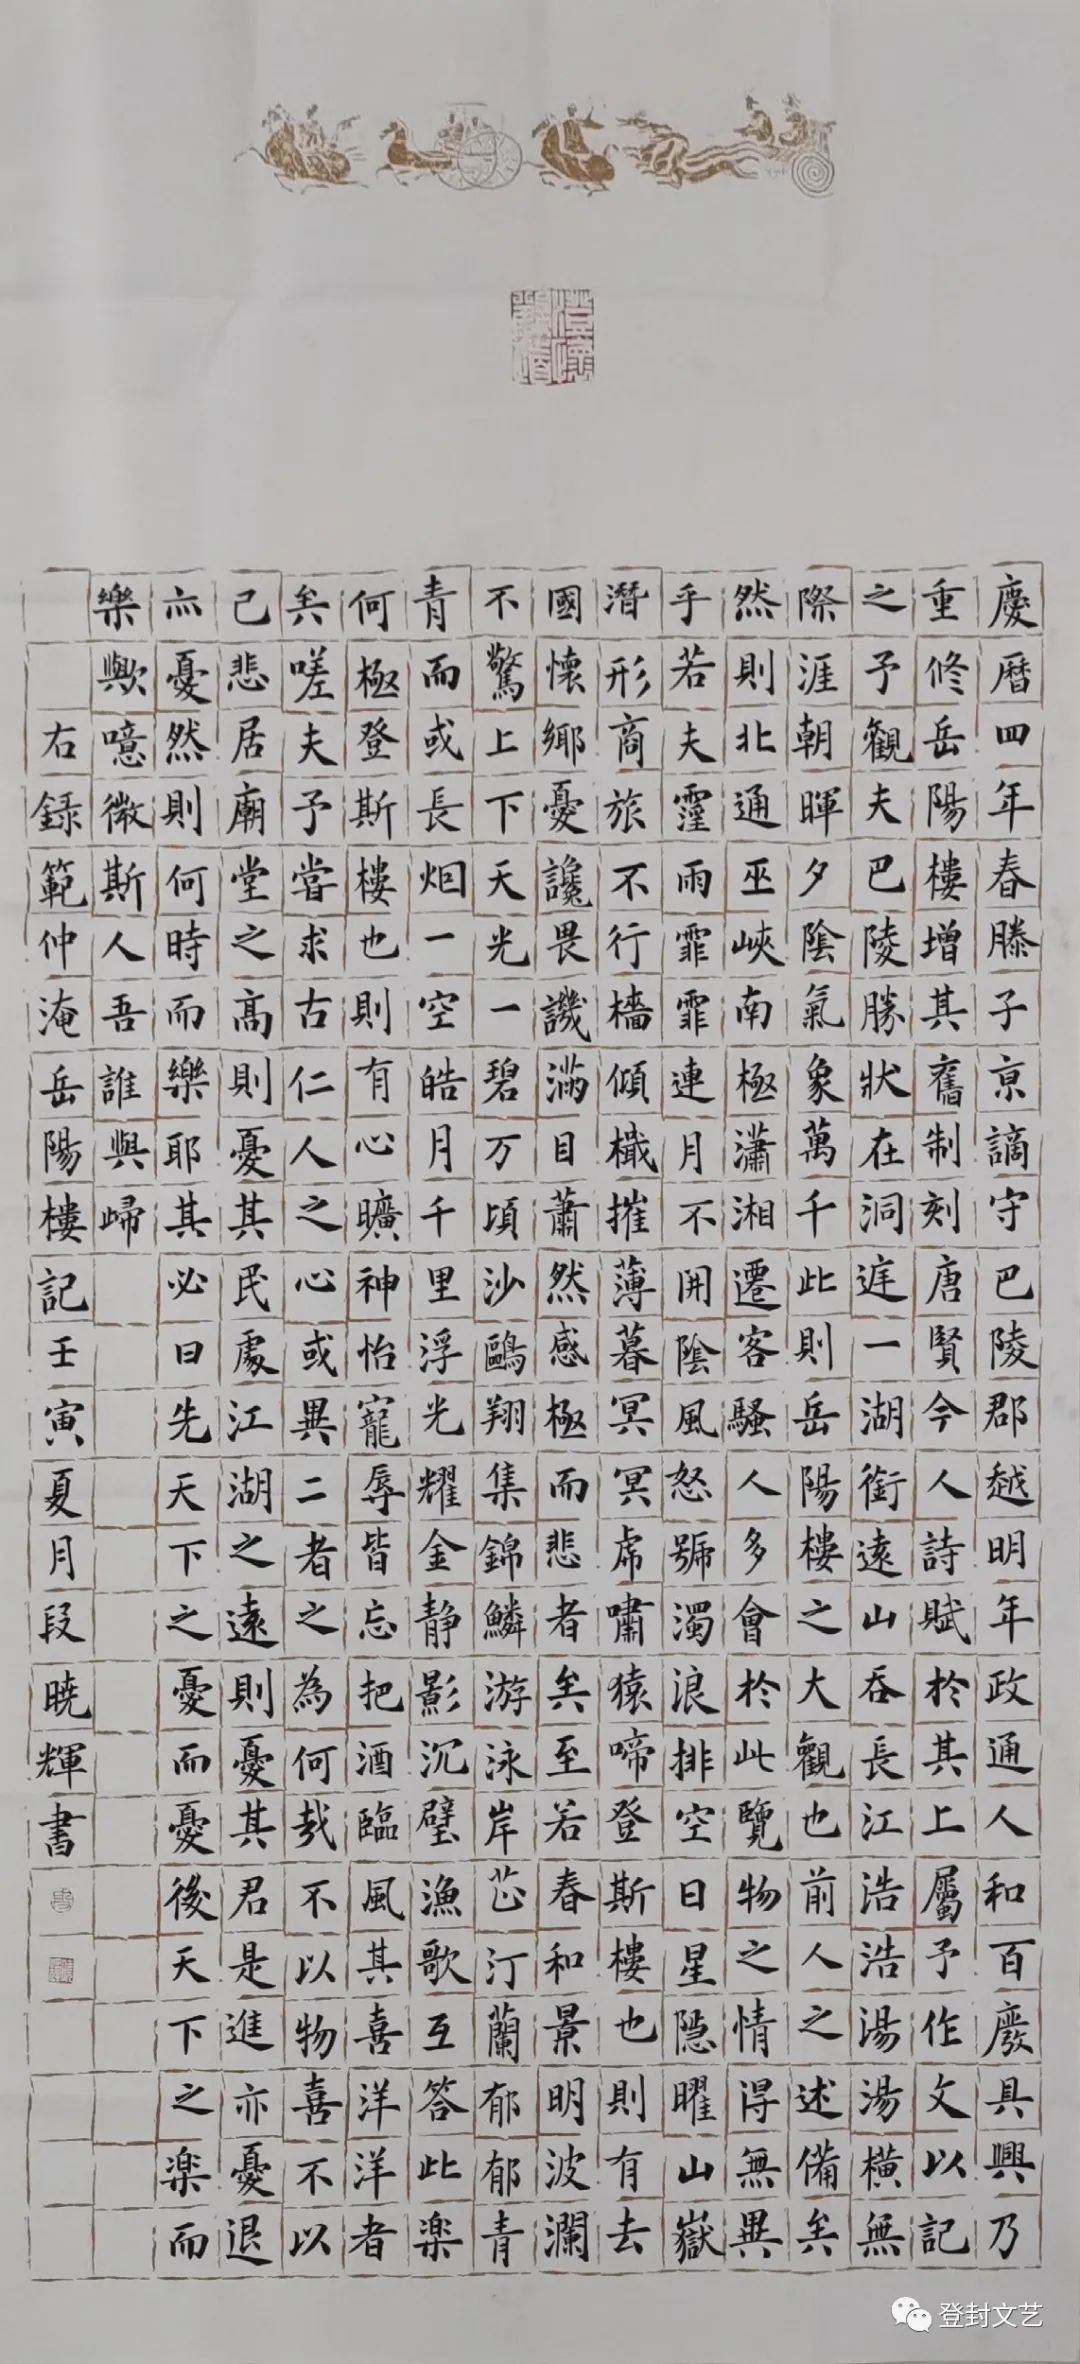 澄懷觀道
慶暦四年春滕子京謫守巴陵郡越明年政通人和百廢具興乃
重修岳陽樓增其舊制刻唐賢今人詩賦於其上屬予作文以記
之予觀夫巴陵勝狀在洞庭一湖銜遠山吞長江浩浩湯湯橫無
際涯朝暉夕陰氣象萬千此則岳陽樓之大觀也前人之述備矣
然則北通巫峽南極瀟湘遷客騷人多會於此覽物之情得無異
乎若夫霪雨霏霏連月不開陰風怒號濁浪排空日星隱曜山嶽
潛形商旅不行檣傾檝摧薄暮冥冥虎嘯猿啼登斯樓也則有去
國懷鄉憂讒畏譏滿目蕭然感極而悲者矣至若春和景明波瀾
不驚上下天光一碧万頃沙鷗翔集錦鱗游泳岸芷汀蘭郁郁青
青而或長烟一空皓月千里浮光耀金静影沉璧漁歌互答此楽
何極登斯樓也則有心曠神怡寵辱皆忘把酒臨風其喜洋洋者
矣嗟夫予嘗求古仁人之心或異二者之為何哉不以物喜不以
己悲居廟堂之高則憂其民處江湖之遠則憂其君是進亦憂退
亦憂然則何時而樂耶其必曰先天下之憂而憂後天下之楽而
樂歟噫微斯人吾誰與歸
右録範仲淹岳陽樓記壬寅夏月段曉輝書
登封文艺